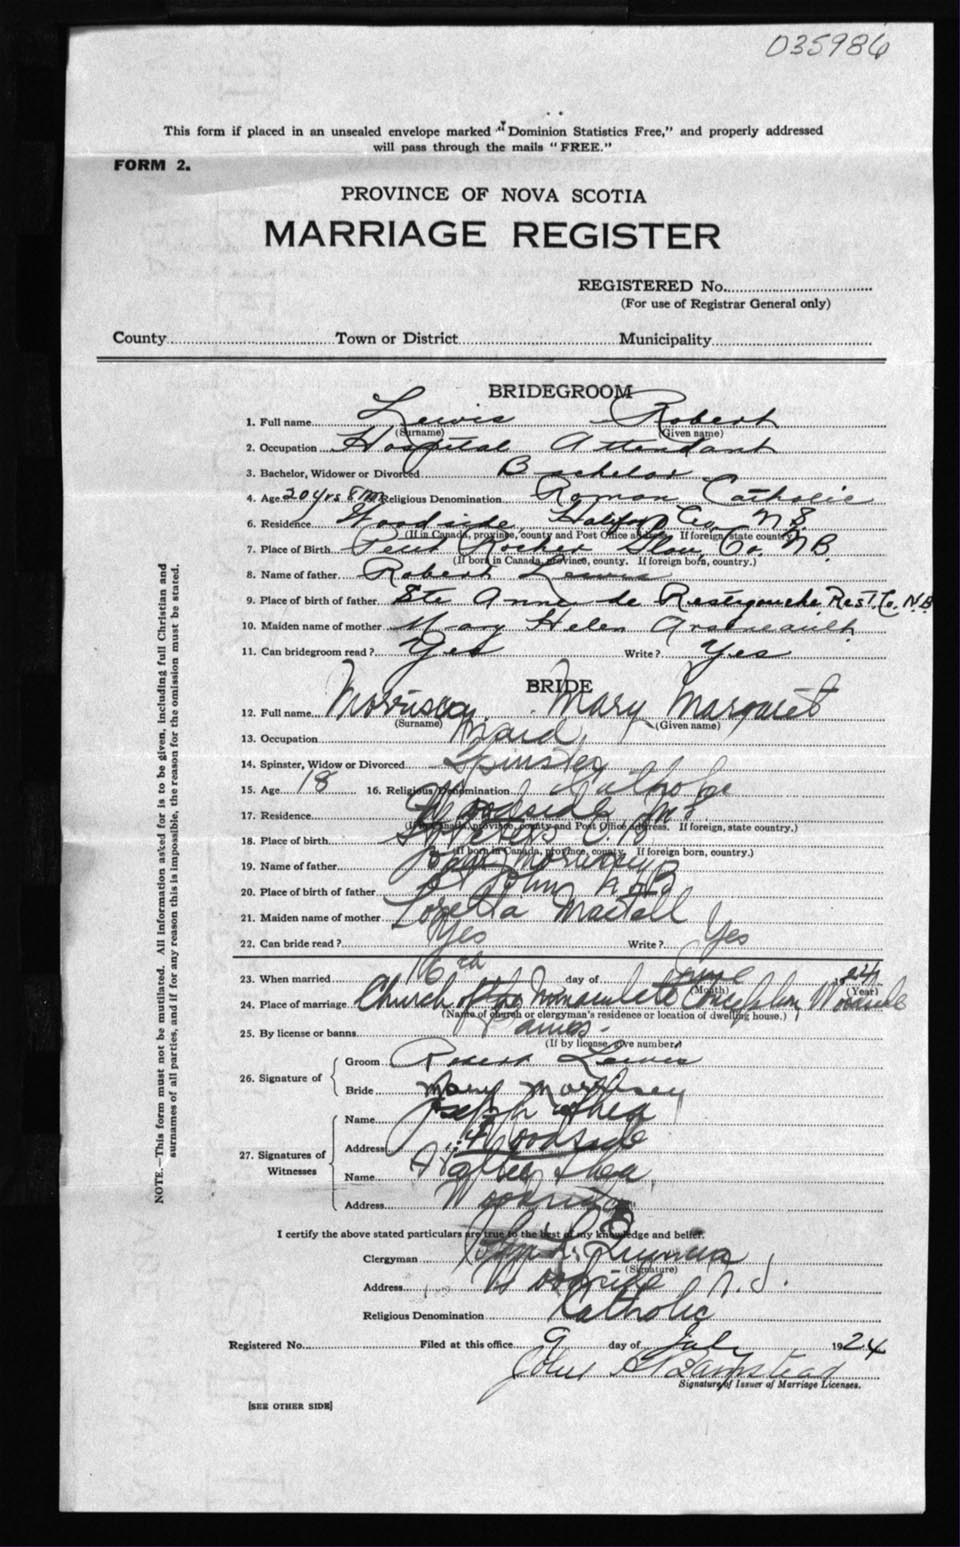 035986
This form if placed in an unsealed envelope marked "Dominion Statistics Free," and properly addressed
will pass through the mails "FREE."
FORM 2.
PROVINCE OF NOVA SCOTIA
MARRIAGE REGISTER
REGISTERED No.
(For use of Registrar General only)
County Town or District Municipality
BRIDEGROOM
1. Full name Lewis Robert
(Surname) (Given name)
2. Occupation Hospital Attendant
3. Bachelor, Widower or Divorced Bachelor
4. Age 20 yrs 8 Religious Denomination Roman Catholic
6. Residence Woodside Halifax Co. N.S.
(If in Canada, province, county and Post Office address. If foreign, state country.)
7. Place of Birth Petit Rocher Glou. Co. N.B.
(If born in Canada, province, county. If foreign born, country.)
8. Name of father Robert Lewis
9. Place of birth of father Ste Anne de Restigouche Rest. Co. N.B
10. Maiden name of mother Mary Helen Arseneault
11. Can bridegroom read? Yes Write? Yes
BRIDE
12. Full name Morrissey Mary Margaret
(Surname) (Given name)
13. Occupation Maid
14. Spinster, Widow or Divorced Spinster
15. Age 18 16. Religious Denomination Catholic
17. Residence Woodside N.S
(If in Canada, province, county and Post Office address. If foreign, state country.)
18. Place of birth St Peters C.B.
(If born in Canada, province, county. If foreign born, country.)
19. Name of father Morrissey
20. Place of birth of father St John N.B
21. Maiden name of mother Loretta
22. Can bride read? Yes Write? Yes
23. When married 16th day of June 1924
(Month) (Year)
24. Place of marriage Church of the Immaculate Conception, Woodside
(Name of church or clergyman's residence or location of dwelling house.)
25. By license or banns Banns.
(If by license, give number)
26. Signature of Groom Robert Lewis
Bride Mary Morrissey
27. Signatures of Witnesses
Name Joseph Shea
Address Woodside
Name Shea
Address Woodside
I certify the above stated particulars are true to the best of my knowledge and belief.
Clergyman
(Signature)
Address Woodside N.S.
Religious Denomination Catholic
Registered No. Filed at this office 9 day of July 1924
John
Signature of Issuer of Marriage Licenses.
[SEE OTHER SIDE]
NOTE.—This form must not be mutilated. All information asked for is to be given, including full Christian and
surnames of all parties, and if for any reason this is impossible, the reason for the omission must be stated.